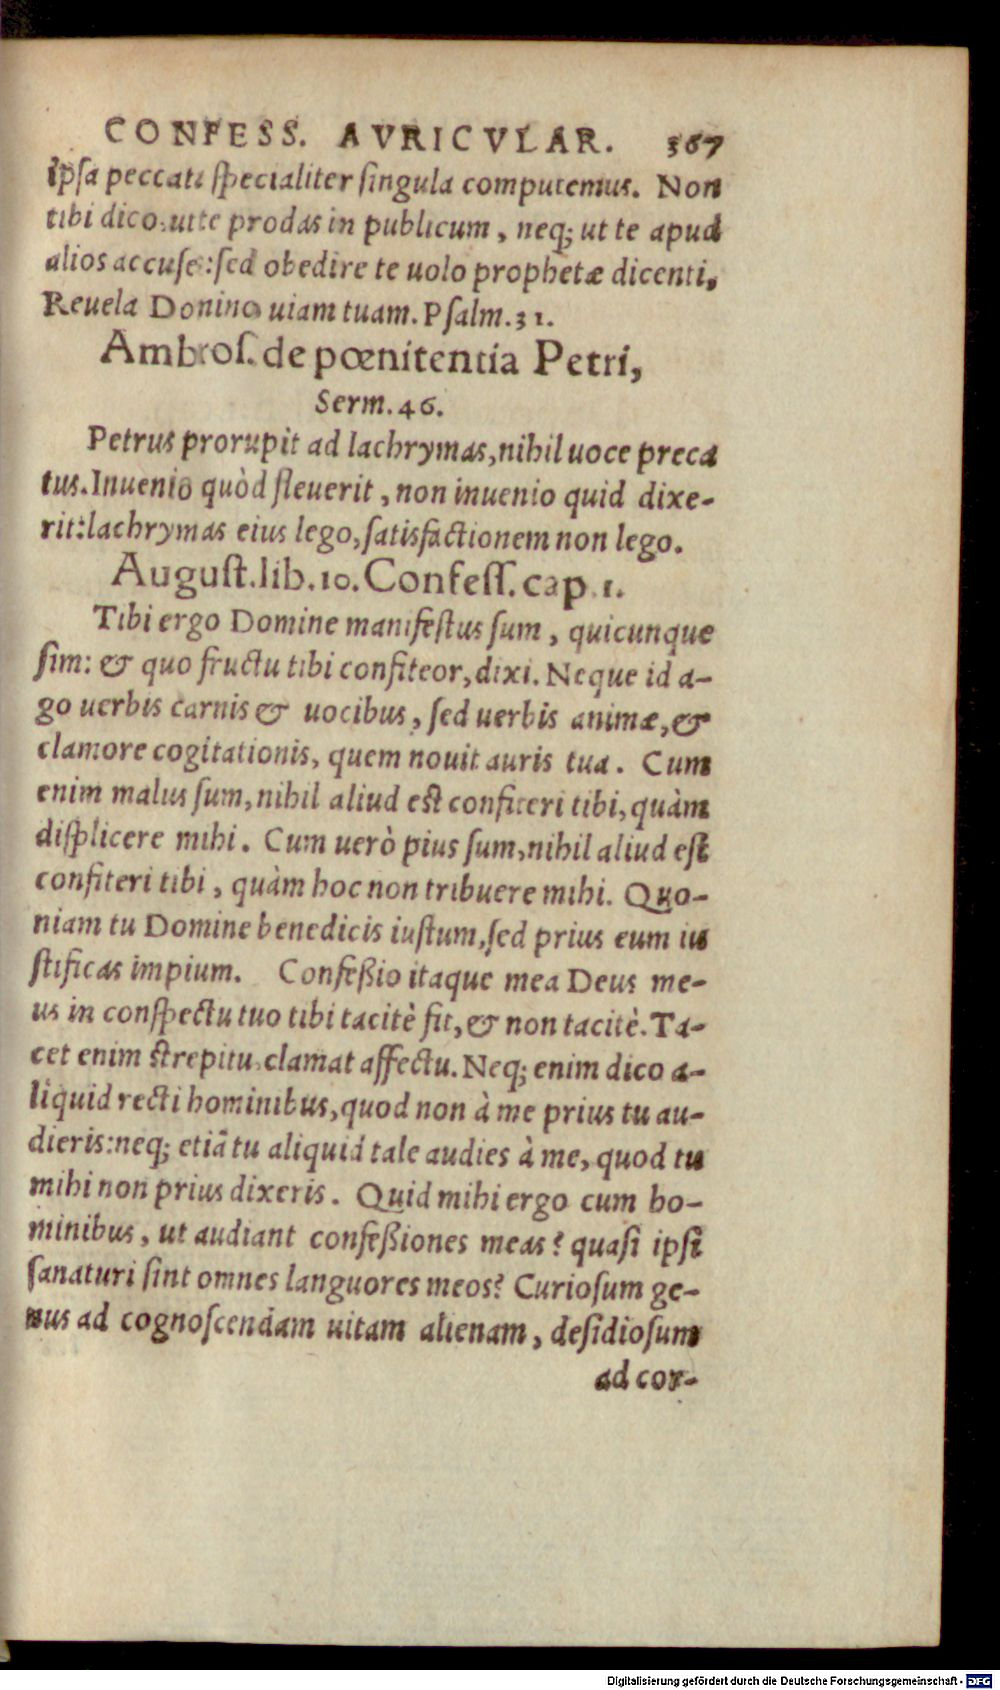 CONFESS. AVRICVLAR. 367
ipsa peccata specialiter singula computemus. Non
tibi dico, ut te prodas in publicum, neq; ut te apud
alios accuses: sed obedire te uolo prophetæ dicenti,
Reuela Domino uiam tuam. Psalm. 31.
Ambros. de pœnitentia Petri,
Serm. 46.
Petrus prorupit ad lachrymas, nihil uoce preca
tus. Inuenio quòd fleuerit, non inuenio quid dixe-
rit: lachrymas eius lego, satisfactionem non lego.
August. lib. 10. Confess. cap. 1.
Tibi ergo Domine manifestus sum, quicunque
sim: & quo fructu tibi confiteor, dixi. Neque id a-
go uerbis carnis & uocibus, sed uerbis animæ, &
clamore cogitationis, quem nouit auris tua. Cum
enim malus sum, nihil aliud est confiteri tibi, quàm
displicere mihi. Cum uerò pius sum, nihil aliud est
confiteri tibi, quàm hoc non tribuere mihi. Quo-
niam tu Domine benedicis iustum, sed prius eum iu
stificas impium. Confeßio itaque mea Deus me-
us in conspectu tuo tibi tacitè fit, & non tacitè. Ta-
cet enim strepitu, clamat affectu. Neq; enim dico a-
liquid recti hominibus, quod non à me prius tu au-
dieris: neq; etiã tu aliquid tale audies à me, quod tu
mihi non prius dixeris. Quid mihi ergo cum ho-
minibus, ut audiant confeßiones meas? quasi ipsi
sanaturi sint omnes languores meos? Curiosum ge-
nus ad cognoscendam uitam alienam, desidiosum
ad cor-
Digitalisierung gefördert durch die Deutsche Forschungsgemeinschaft - DFG